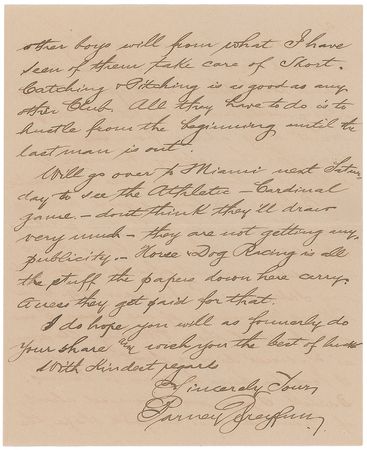 other boys will from what I have
seen of them take care of Short.
Catching & Pitching is as good as any
other Club. All they have to do is to
hustle from the beginning until the
last man is out.
Will go over to Miami next Satur-
day to see the Athletic - Cardinal
game. - don't think they'll draw
very much - they are not getting any
publicity. - Horse & Dog Racing is all
the stuff the papers down here carry.
Guess they get paid for that.
I do hope you will as formerly do
your share & wish you the best of luck
With kindest regards
Sincerely Yours
Barney Dreyfuss